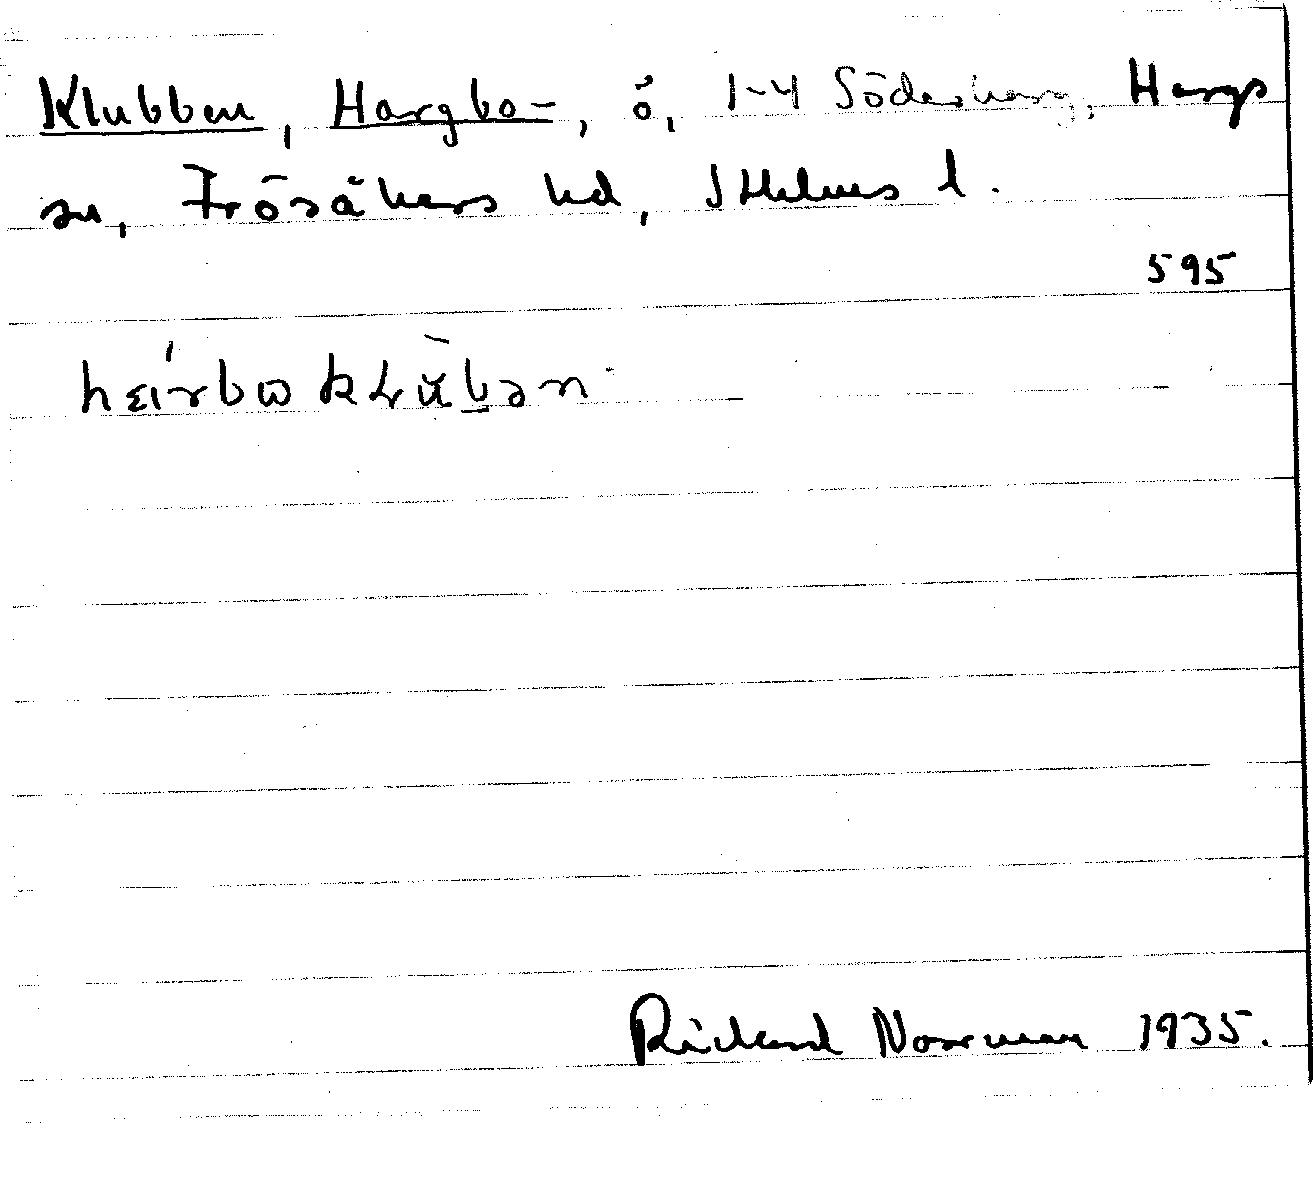 Klubben, Hargbo-, ö, 1-4 Söderharg, Hargs
sn, Frösåkers hd, Sthlms l.
595
Rickard Norrman 1935.